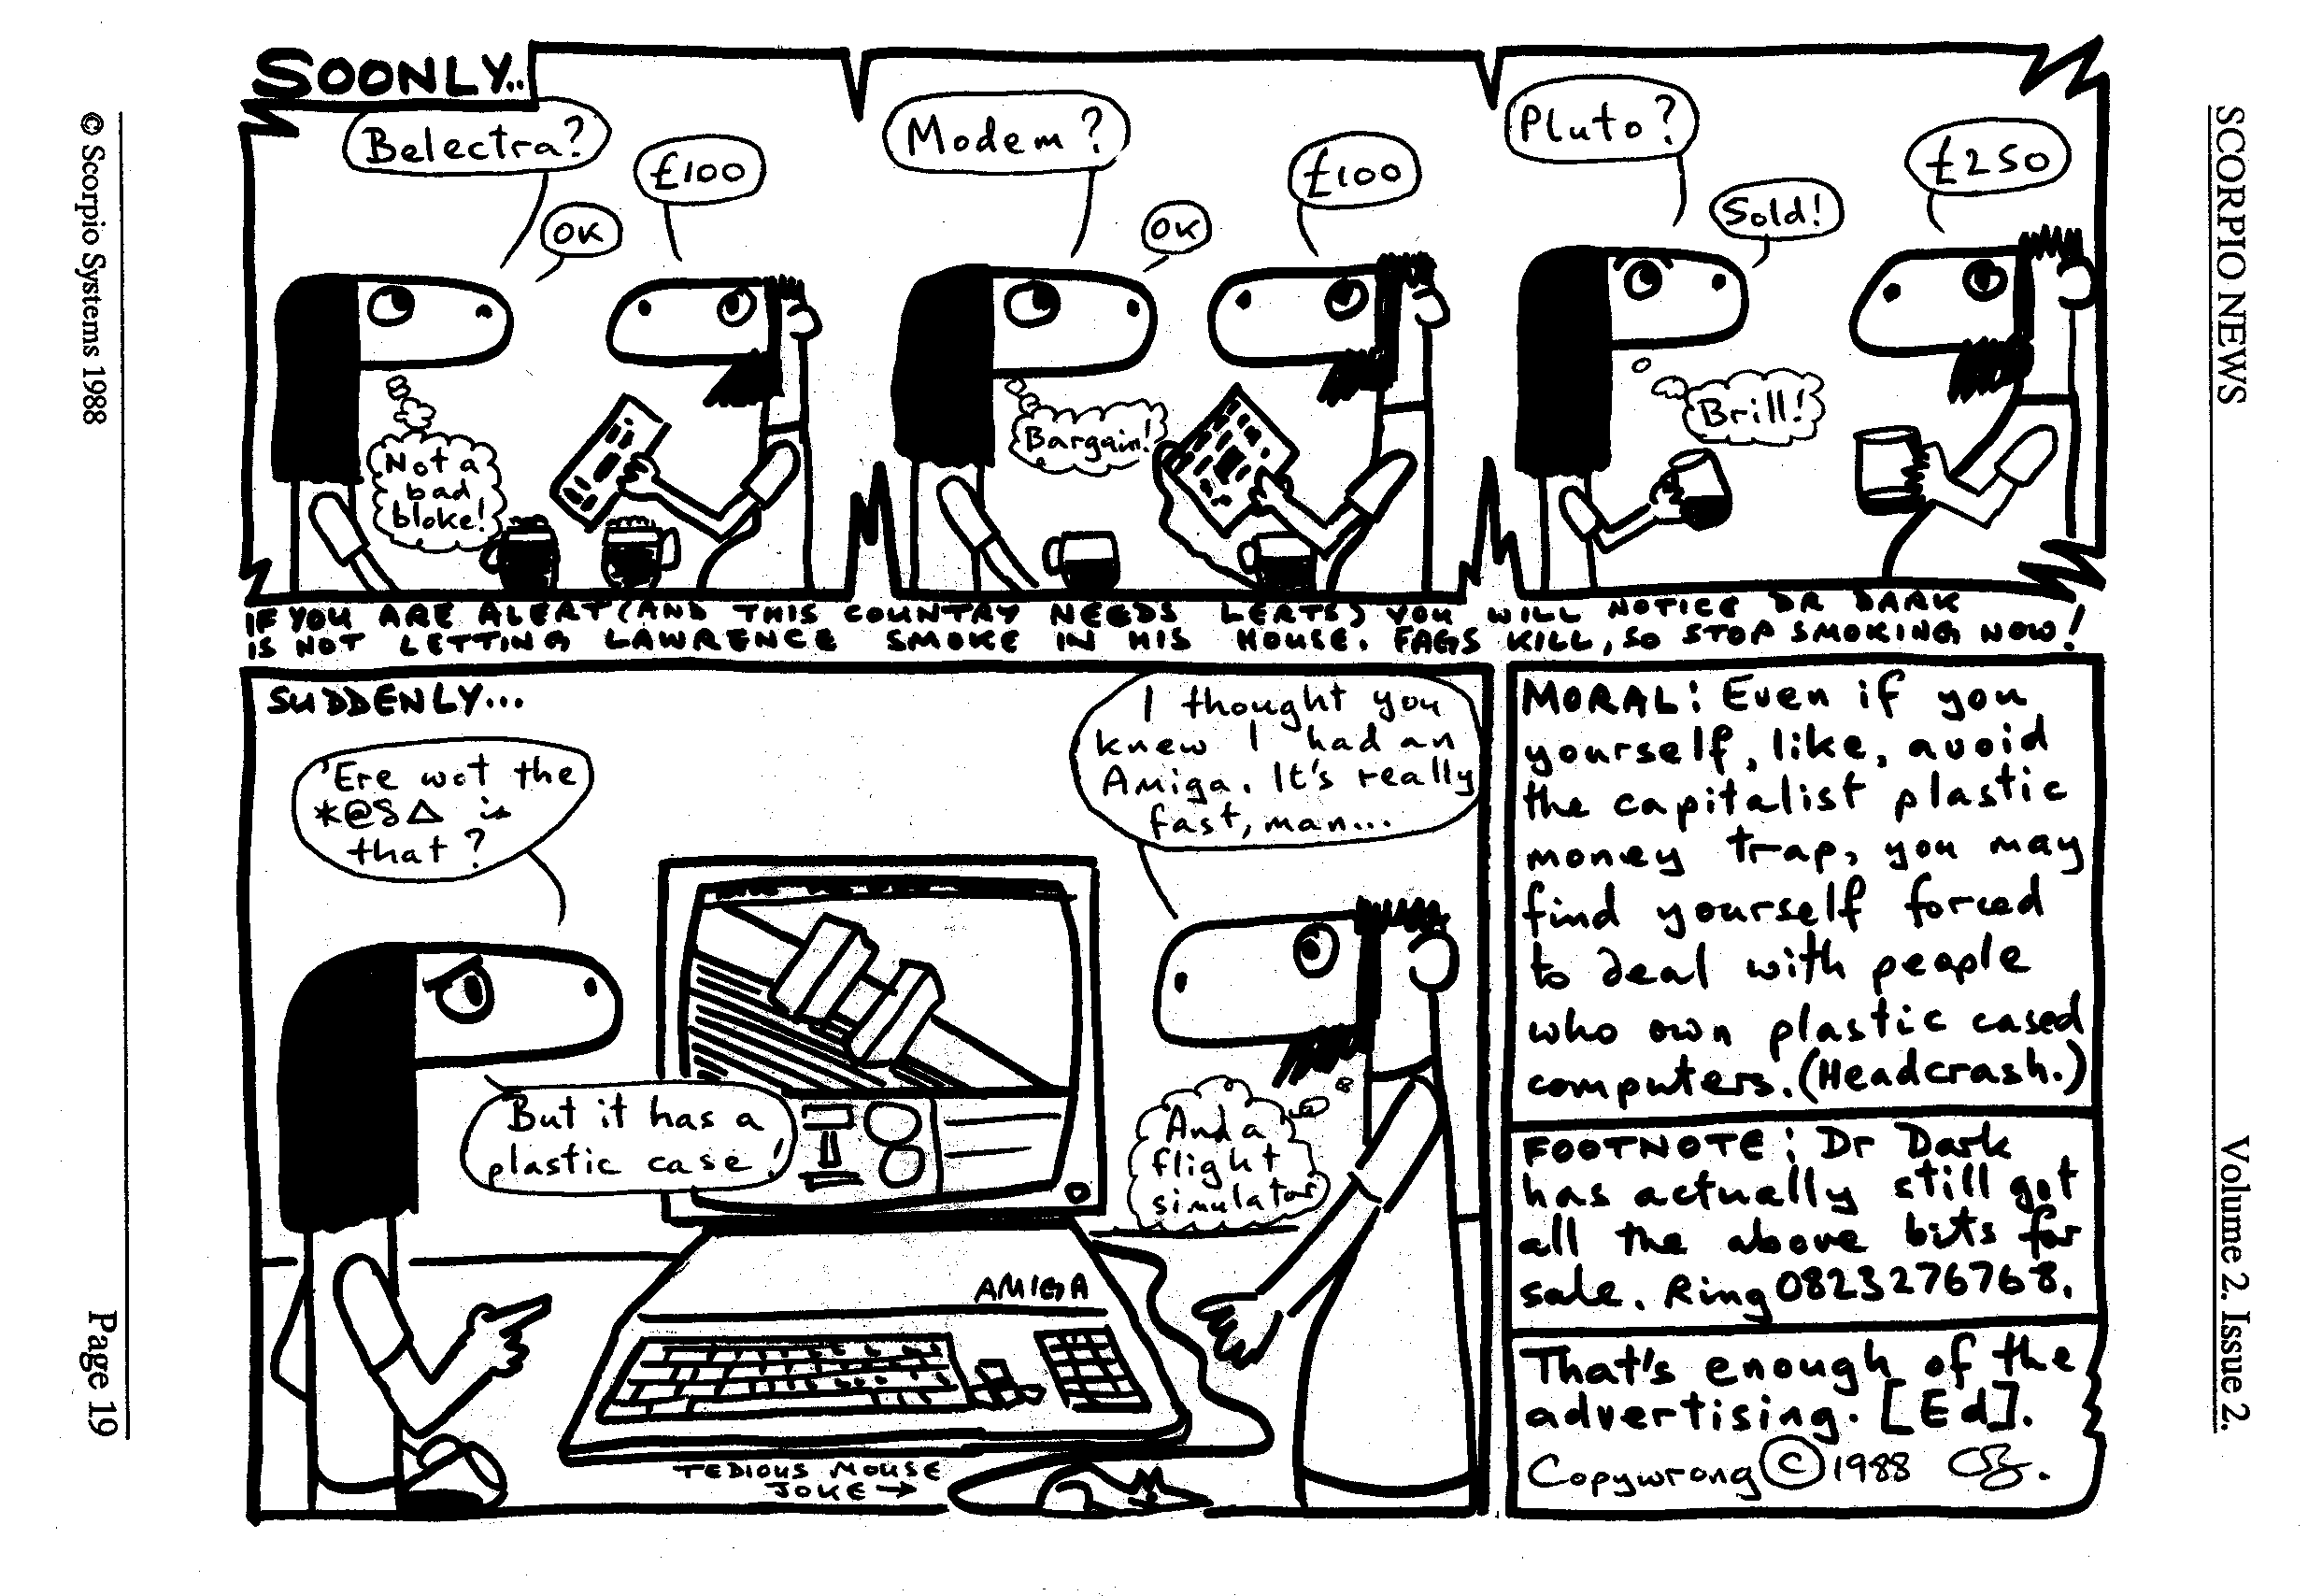 SCORPIO NEWS
Volume 2. Issue 2.
SOONLY..
Belectra?
£100
OK
Not a
bad
bloke!
Modem?
£100
OK
Bargain!
Pluto?
£250
Sold!
Brill!
IF YOU ARE ALERT (AND THIS COUNTRY NEEDS LERTS) YOU WILL NOTICE DR DARK
IS NOT LETTING LAWRENCE SMOKE IN HIS HOUSE. FAGS KILL, SO STOP SMOKING NOW!
SUDDENLY...
'Ere wot the
*@§△ is
that?
I thought you
knew I had an
Amiga. It's really
fast, man...
But it has a
plastic case!
And a
flight
simulator
AMIGA
TEDIOUS MOUSE
JOKE →
MORAL: Even if you
yourself, like, avoid
the capitalist plastic
money trap, you may
find yourself forced
to deal with people
who own plastic cased
computers. (Headcrash.)
FOOTNOTE: Dr Dark
has actually still got
all the above bits for
sale. Ring 0823276768.
That's enough of the
advertising. [Ed].
Copywrong © 1988
© Scorpio Systems 1988
Page 19